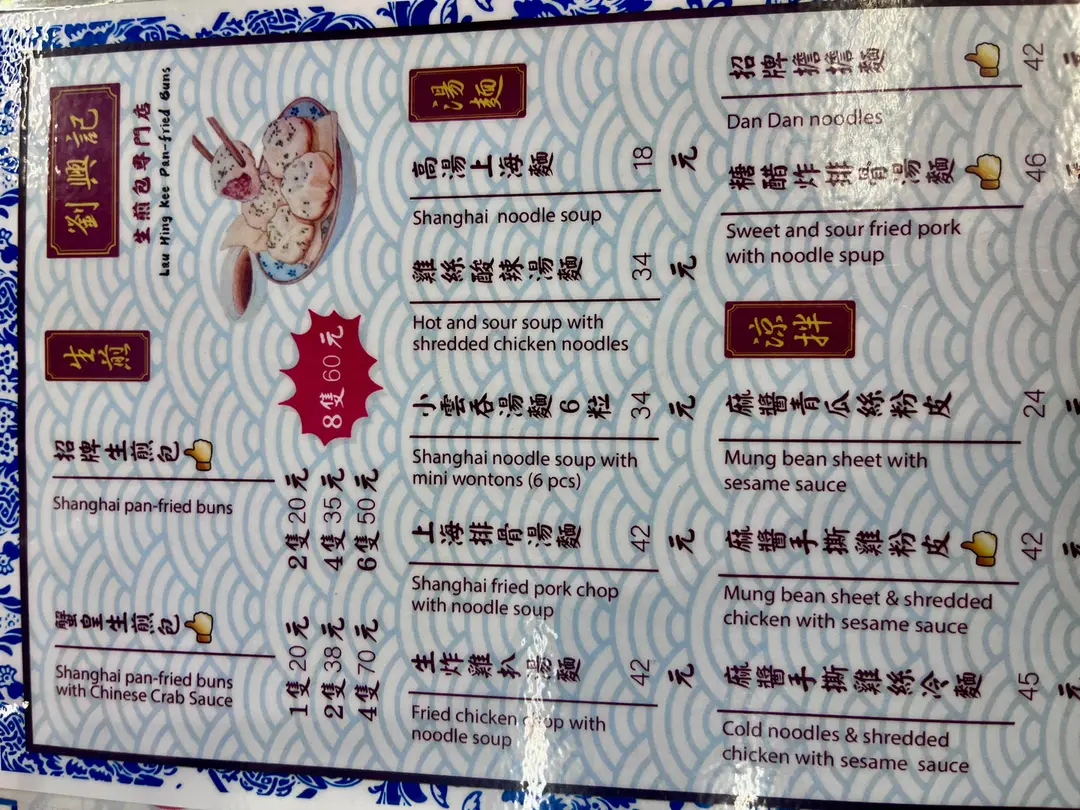 劉興記
生煎包專門店
Lau Hing Kee Pan-fried Buns
生煎
招牌生煎包
Shanghai pan-fried buns
2隻20元
4隻35元
6隻50元
8隻60元
蟹皇生煎包
Shanghai pan-fried buns
with Chinese Crab Sauce
1隻20元
2隻38元
4隻70元
湯麵
高湯上海麵 18元
Shanghai noodle soup
雞絲酸辣湯麵 34元
Hot and sour soup with
shredded chicken noodles
小雲吞湯麵6粒 34元
Shanghai noodle soup with
mini wontons (6 pcs)
上海排骨湯麵 42元
Shanghai fried pork chop
with noodle soup
生炸雞扒湯麵 42元
Fried chicken chop with
noodle soup
招牌擔擔麵 42元
Dan Dan noodles
糖醋炸排骨湯麵 46
Sweet and sour fried pork
with noodle spup
涼拌
麻醬青瓜絲粉皮 24元
Mung bean sheet with
sesame sauce
麻醬手撕雞粉皮 42元
Mung bean sheet & shredded
chicken with sesame sauce
麻醬手撕雞絲冷麵 45元
Cold noodles & shredded
chicken with sesame sauce